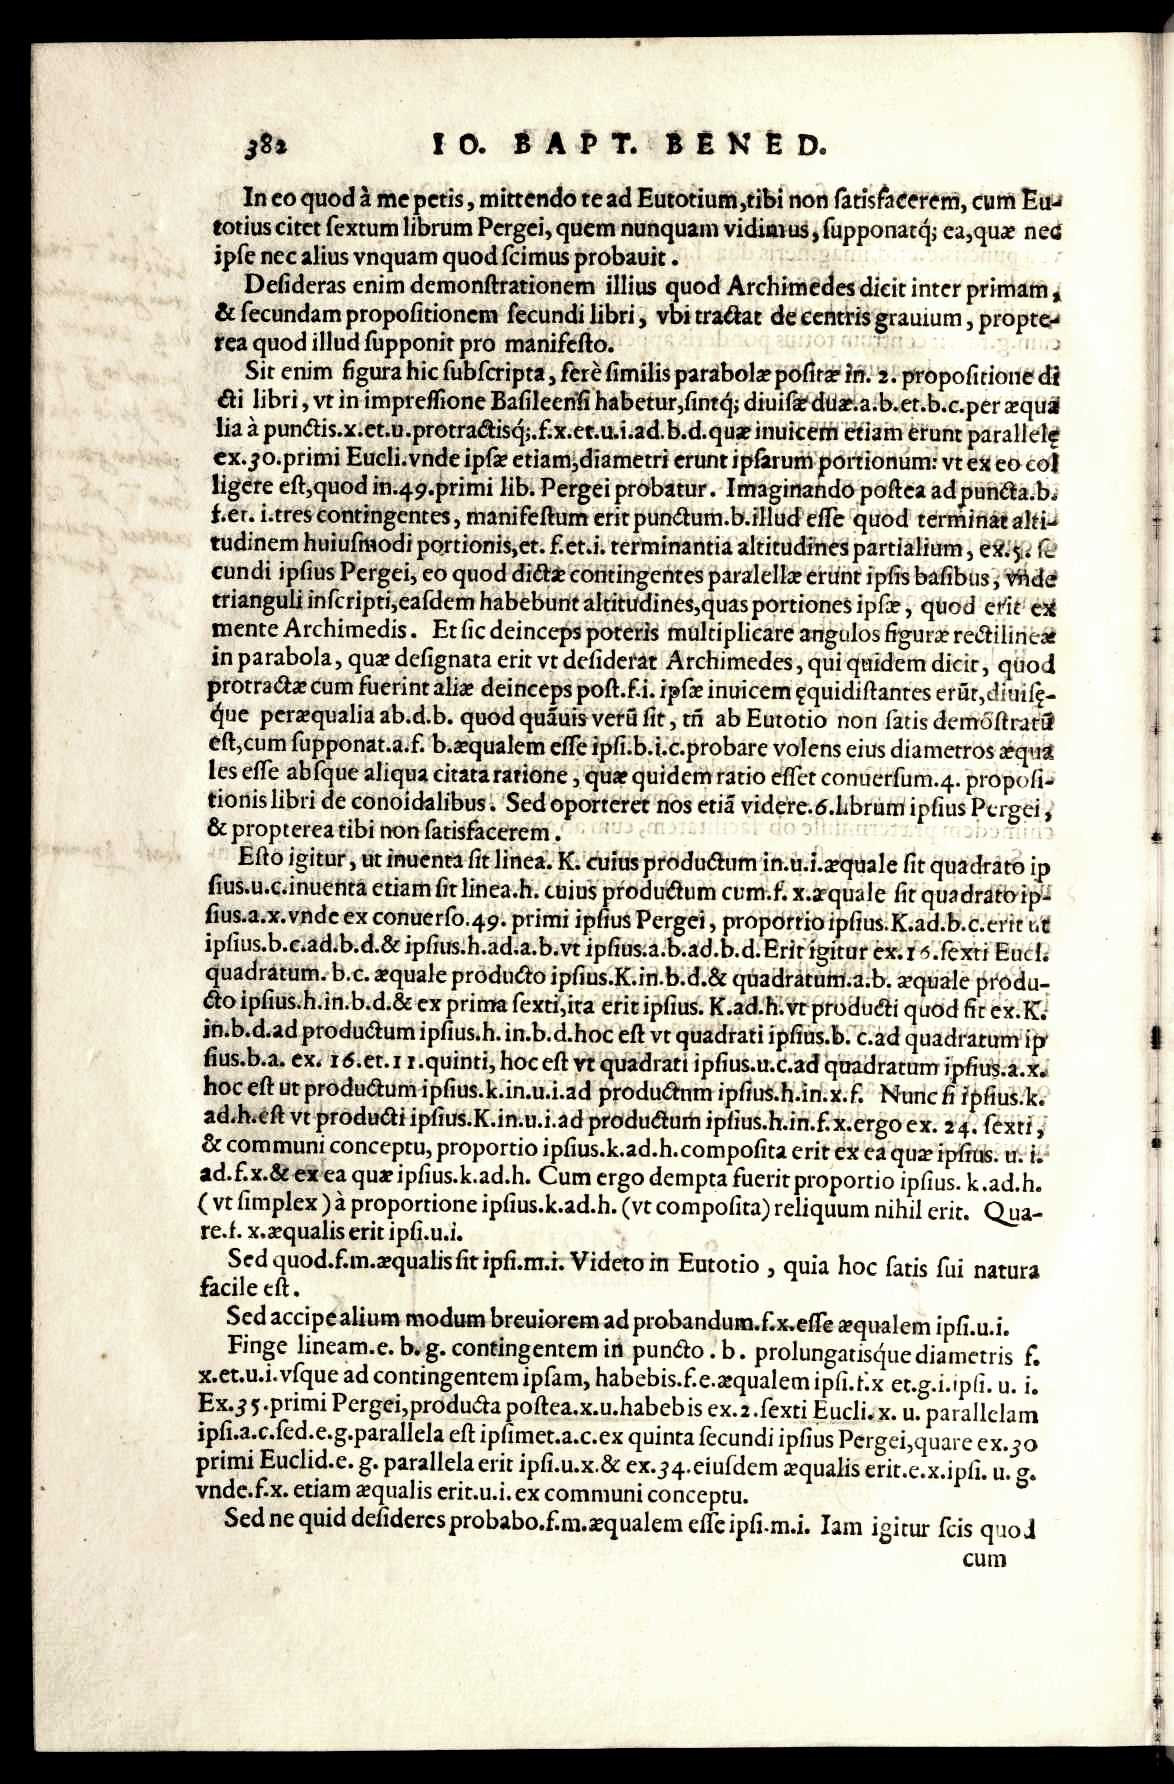 382 IO. BAPT. BENED.
In eo quod à me petis, mittendo te ad Eutotium, tibi non ſatisfacerem, cum Eu-
totius citet ſextum librum Pergei, quem nunquam vidimus, ſupponatq́; ea, quæ nec
ipſe nec alius vnquam quod ſcimus probauit.
Deſideras enim demonſtrationem illius quod Archimedes dicit inter primam,
& ſecundam propoſitionem ſecundi libri, vbi tractat de centris grauium, propte-
rea quod illud ſupponit pro manifeſto.
Sit enim figura hic ſubſcripta, ferè ſimilis parabolæ poſitæ in. 2. propoſitione di
cti libri, vt in impreſſione Baſileenſi habetur, ſintq́; diuiſæ duæ.a.b.et.b.c.per æqua
lia à punctis.x.et.u.protractisq́;.f.x.et.u.i.ad.b.d.quæ inuicem etiam erunt parallelę
ex.30.primi Eucli.vnde ipſæ etiam, diametri erunt ipſarum portionum: vt ex eo col
ligere eſt, quod in.49.primi lib. Pergei probatur. Imaginando poſtea ad puncta.b.
f.et. i.tres contingentes, manifeſtum erit punctum.b.illud eſſe quod terminat alti-
tudinem huiuſmodi portionis, et. f.et.i. terminantia altitudines partialium, ex.5. ſe
cundi ipſius Pergei, eo quod dictæ contingentes paralellæ erunt ipſis baſibus, vnde
trianguli inſcripti, eaſdem habebunt altitudines, quas portiones ipſæ, quod erit ex
mente Archimedis. Et ſic deinceps poteris multiplicare angulos figuræ rectilineæ
in parabola, quæ deſignata erit vt deſiderat Archimedes, qui quidem dicit, quod
protractæ cum fuerint aliæ deinceps poſt.f.i. ipſæ inuicem ęquidiſtantes erũt, diuiſę-
q́ue peræqualia ab.d.b. quod quãuis verũ ſit, tñ ab Eutotio non ſatis demõſtratũ
eſt, cum ſupponat.a.f. b.æqualem eſſe ipſi.b.i.c.probare volens eius diametros æqua
les eſſe abſque aliqua citata ratione, quæ quidem ratio eſſet conuerſum.4. propoſi-
tionis libri de conoidalibus. Sed oporteret nos etiã videre.6.librum ipſius Pergei,
& propterea tibi non ſatisfacerem.
Eſto igitur, ut inuenta ſit linea. K. cuius productum in.u.i.æquale ſit quadrato ip
ſius.u.c.inuenta etiam ſit linea.h. cuius productum cum.f. x.æquale ſit quadrato ip-
ſius.a.x.vnde ex conuerſo.49. primi ipſius Pergei, proportio ipſius.K.ad.b.c.erit ut
ipſius.b.c.ad.b.d.& ipſius.h.ad.a.b.vt ipſius.a.b.ad.b.d. Erit igitur ex.16.ſexti Eucl.
quadratum. b.c. æquale producto ipſius.K.in.b.d.& quadratum.a.b. æquale produ-
cto ipſius.h.in.b.d.& ex prima ſexti, ita erit ipſius. K.ad.h.vt producti quod fit ex.K.
in.b.d.ad productum ipſius.h. in.b.d.hoc eſt vt quadrati ipſius.b. c.ad quadratum ip
ſius.b.a. ex. 16.et.11.quinti, hoc eſt vt quadrati ipſius.u.c.ad quadratum ipſius.a.x.
hoc eſt ut productum ipſius.k.in.u.i.ad productum ipſius.h.in.x.f. Nunc ſi ipſius.k.
ad.h.eſt vt producti ipſius.K.in.u.i.ad productum ipſius.h.in.f.x.ergo ex. 24. ſexti,
& communi conceptu, proportio ipſius.k.ad.h.compoſita erit ex ea quæ ipſius. u. i.
ad.f.x.& ex ea quæ ipſius.k.ad.h. Cum ergo dempta fuerit proportio ipſius. k.ad.h.
(vt ſimplex) à proportione ipſius.k.ad.h. (vt compoſita) reliquum nihil erit. Qua-
re.f. x.æqualis erit ipſi.u.i.
Sed quod.f.m.æqualis ſit ipſi.m.i. Videto in Eutotio, quia hoc ſatis ſui natura
facile eſt.
Sed accipe alium modum breuiorem ad probandum.f.x.eſſe æqualem ipſi.u.i.
Finge lineam.e. b. g. contingentem in puncto. b. prolungatisq́ue diametris f.
x.et.u.i.vſque ad contingentem ipſam, habebis.f.e.æqualem ipſi.f.x et.g.i.ipſi. u. i.
Ex.35.primi Pergei, producta poſtea.x.u.habebis ex.2.ſexti Eucli. x. u. parallelam
ipſi.a.c.ſed.e.g.parallela eſt ipſimet.a.c.ex quinta ſecundi ipſius Pergei, quare ex.30
primi Euclid.e. g. parallela erit ipſi.u.x.& ex.34.eiuſdem æqualis erit.e.x.ipſi. u. g.
vnde.f.x. etiam æqualis erit.u.i. ex communi conceptu.
Sed ne quid deſideres probabo.f.m.æqualem eſſe ipſi.m.i. Iam igitur ſcis quod
cum